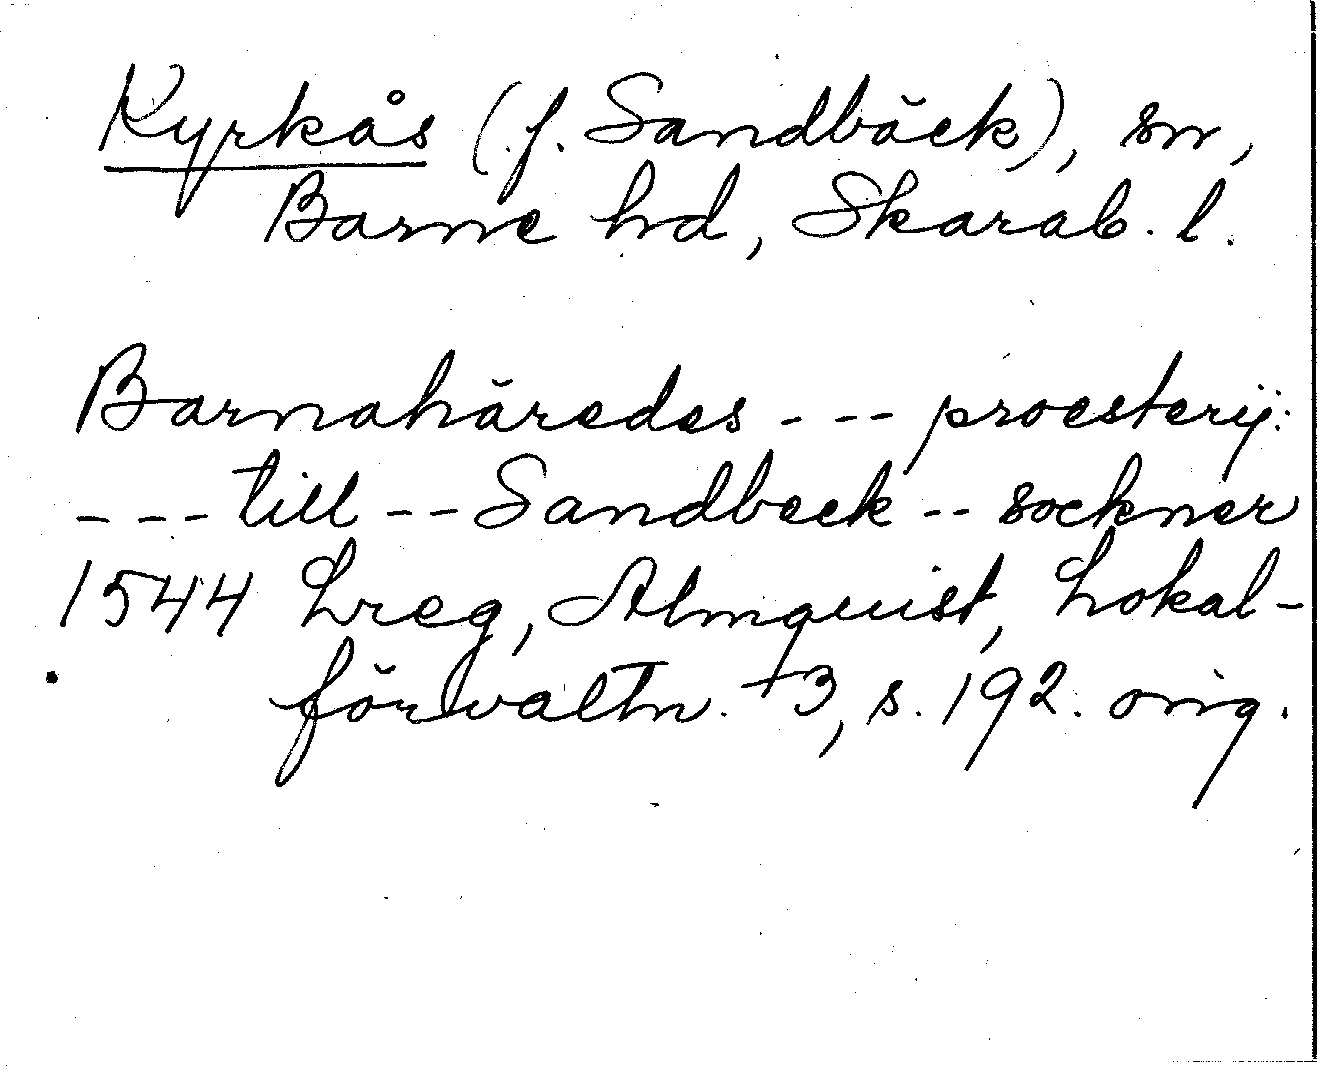 Kyrkås (f. Sandbäck), sn,
Barne hd, Skarab. l.
Barnahäredes --- proesterij:
--- till -- Sandbeck -- sockner
1544 Lreg, Almquist, Lokal-
förvaltn. 3, s. 192. orig.